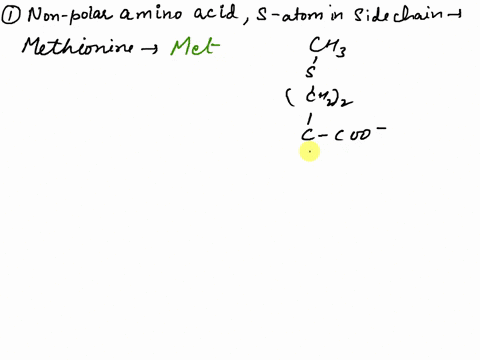 ① Non-polar amino acid, S-atom in side chain →
Methionine → Met
CH3
S
(CH2)2
C-COO-